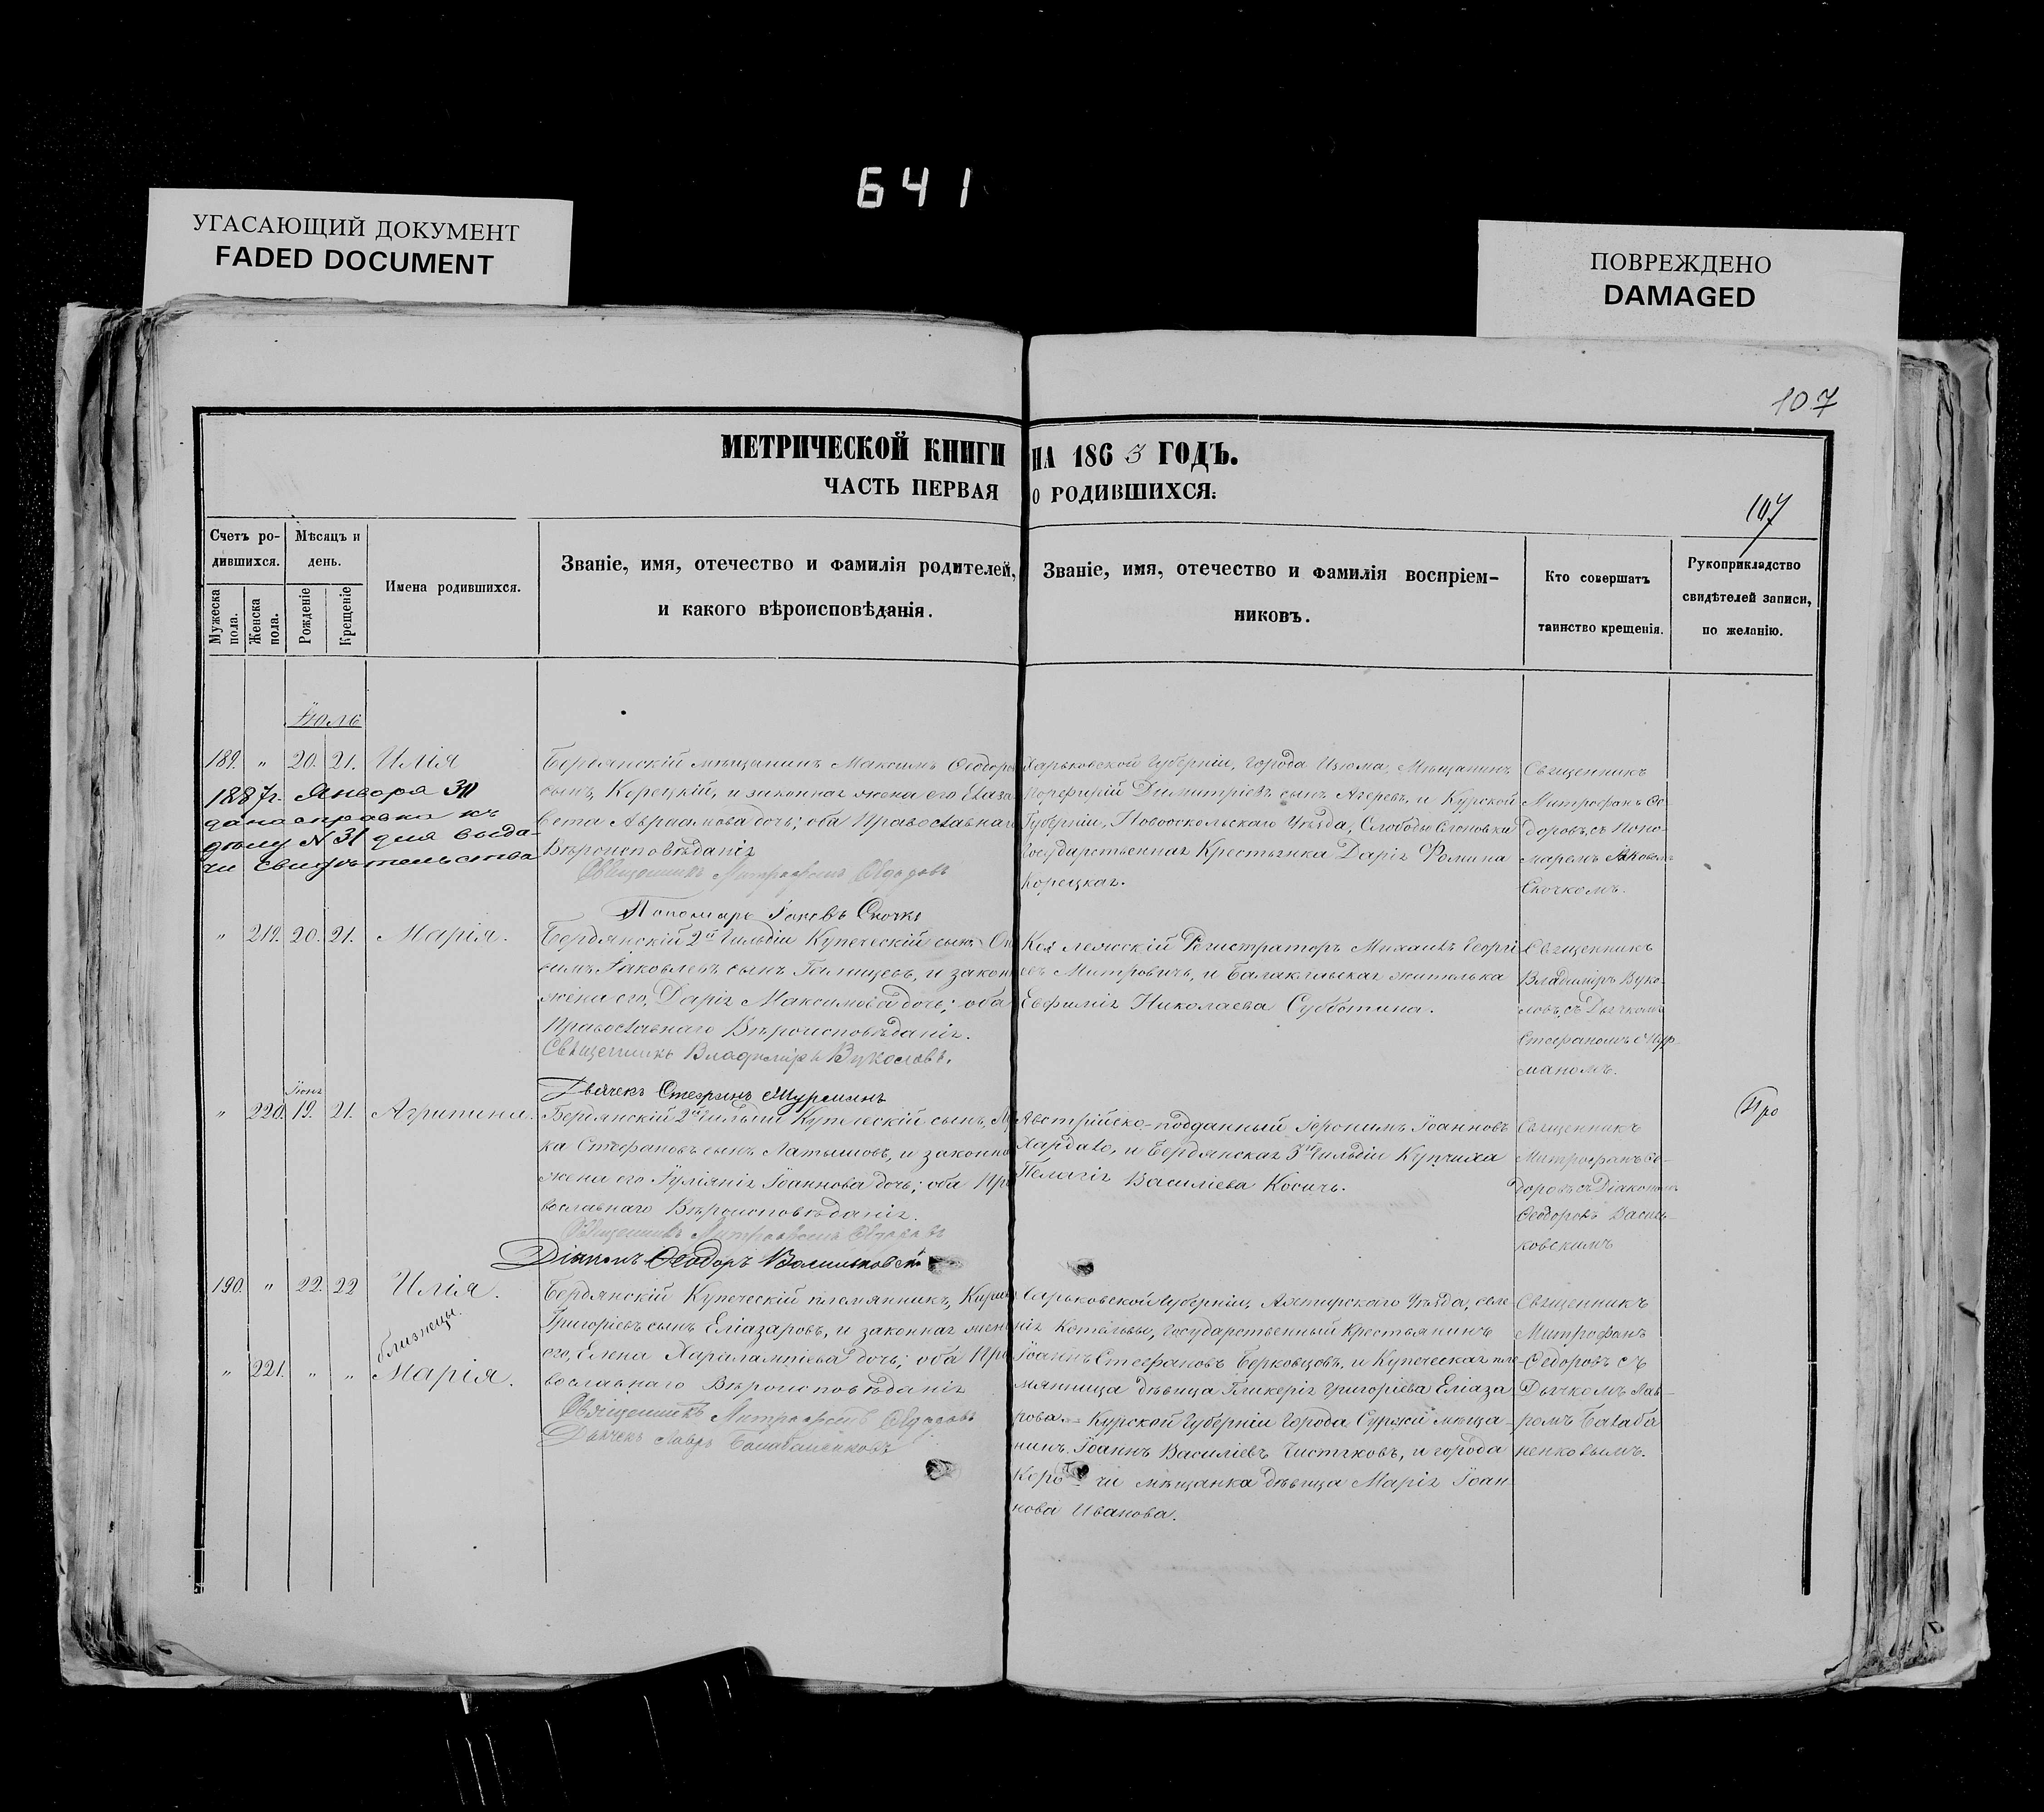 641
УГАСАЮЩИЙ ДОКУМЕНТ
FADED DOCUMENT
ПОВРЕЖДЕНО
DAMAGED
107
МЕТРИЧЕСКОЙ КНИГИ НА 1863 ГОДЪ.
ЧАСТЬ ПЕРВАЯ О РОДИВШИХСЯ.
107
Счетъ ро-
дившихся.
Мужеска пола.
Женска пола.
Мѣсяцъ и
день.
Рожденіе
Крещеніе
Имена родившихся.
Званіе, имя, отечество и фамилія родителей,
и какого вѣроисповѣданія.
Званіе, имя, отечество и фамилія воспріем-
никовъ.
Кто совершатъ
таинство крещенія.
Рукоприкладство
свидѣтелей записи,
по желанію.
Іюль
189. " 20. 21. Илія
1887г. Января 30
дана справка къ
дѣлу N 31 для выда-
чи свидѣтельства
Бердянскій мѣщанинъ Максимъ Ѳеодоро
сынъ, Корецкій, и законная жена его Елиза
вета Авраамова дочь; оба Православнаго
Вѣроисповѣданія
Священникъ Митрофанъ Ѳедоровъ
Пономарь Іаковъ Скочко
Харьковской Губерніи, города Изюма, Мѣщанинъ
Порфирій Димитріевъ сынъ Агеревъ, и Курской
Губерніи, Новооскольскаго Уѣзда, Слободы Слоновки
Государственная Крестьянка Дарія Ѳомина
Корецкая.
Священникъ
Митрофанъ Ѳе-
доровъ, съ Поно-
маремъ Іаковомъ
Скочкомъ.
" 219. 20. 21. Марія.
Бердянскій 2й Гильдіи Купеческій сынъ Они
симъ Іаковлевъ сынъ и закон
жена его, Дарія Максимова дочь; оба
Православнаго Вѣроисповѣданія.
Священникъ Владиміръ Вуколовъ.
Дьячекъ Стефанъ Шурманъ
Коллежскій Регистраторъ Михаилъ Георгі
евъ Митровичъ, и Балаклейская жителька
Евфимія Николаева Субботина.
Священникъ
Владиміръ Вуко-
ловъ, съ Дьячкомъ
Стефаномъ Шур-
маномъ.
Іюня
" 220. 19. 21. Агрипина.
Бердянскій 2й Гильдіи Купеческій сынъ, Лу
ка Стефановъ сынъ Латышовъ, и законна
жена его Іуліянія Іоаннова дочь; оба Пра
вославнаго Вѣроисповѣданія.
Священникъ Митрофанъ Ѳедоровъ
Діаконъ Ѳеодоръ Васильковскій
Австрійско-подданный Іеронимъ Іоанновъ
и Бердянская 3й Гильдіи Купчиха
Пелагія Василіева Косичь.
Священникъ
Митрофанъ Ѳе-
доровъ съ Діакономъ
Ѳеодоромъ Василь-
ковскимъ
Про
190. " 22. 22 Илія.
близнецы.
" 221. " " Марія.
Бердянскій Купеческій племянникъ, Кири
Григоріевъ сынъ Еліазаровъ, и законная жен
его, Елена Харалампіева дочь; оба Пра
вославнаго Вѣроисповѣданія
Священникъ Митрофанъ Ѳедоровъ
Дьячекъ Лавръ Балабаненковъ
Харьковской Губерніи, Ахтырскаго Уѣзда, селе
нія Котельвы, Государственный Крестьянинъ
Іоаннъ Стефановъ Берковцовъ, и Купеческая пле-
мянница дѣвица Гликерія Григоріева Еліаза
рова. Курской Губерніи города Суджи мѣща-
нинъ Іоаннъ Василіевъ Чистяковъ, и города
Коро чи мѣщанка дѣвица Марія Іоан-
нова Иванова.
Священникъ
Митрофанъ
Ѳедоровъ съ
Дьячкомъ Лав-
ромъ Балаба
ненковымъ.